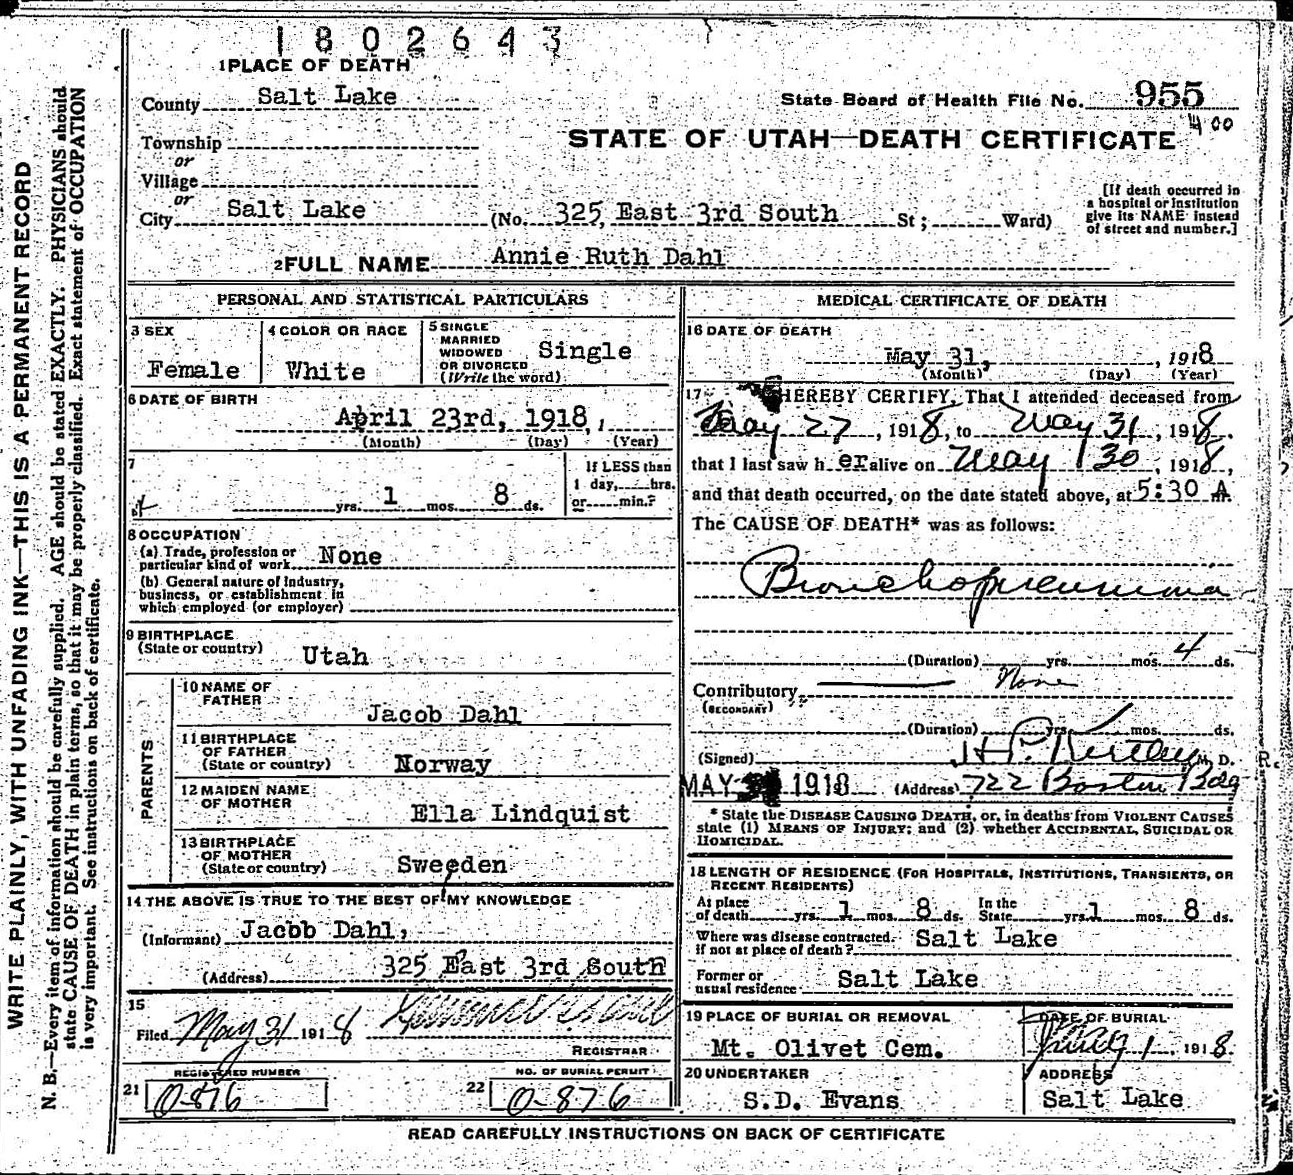 1802643
1 PLACE OF DEATH
County Salt Lake
State Board of Health File No. 955
400
Township
or
Village
or
City Salt Lake (No. 325 East 3rd South St; Ward)
STATE OF UTAH—DEATH CERTIFICATE
[If death occurred in
a hospital or institution
give its NAME instead
of street and number.]
2 FULL NAME Annie Ruth Dahl
PERSONAL AND STATISTICAL PARTICULARS
3 SEX
Female
4 COLOR OR RACE
White
5 SINGLE
MARRIED
WIDOWED
OR DIVORCED
(Write the word)
Single
6 DATE OF BIRTH
April 23rd, 1918,
(Month) (Day) (Year)
7
yrs. 1 mos. 8 ds.
If LESS than
1 day, hrs.
or min.?
8 OCCUPATION
(a) Trade, profession or
particular kind of work None
(b) General nature of industry,
business, or establishment in
which employed (or employer)
9 BIRTHPLACE
(State or country)
Utah
PARENTS
10 NAME OF
FATHER
Jacob Dahl
11 BIRTHPLACE
OF FATHER
(State or country)
Norway
12 MAIDEN NAME
OF MOTHER
Ella Lindquist
13 BIRTHPLACE
OF MOTHER
(State or country)
Sweeden
14 THE ABOVE IS TRUE TO THE BEST OF MY KNOWLEDGE
(Informant) Jacob Dahl,
(Address) 325 East 3rd South
15
Filed May 31 1918
REGISTRAR
REGISTERED NUMBER
21 0-876
NO. OF BURIAL PERMIT
22 0-876
MEDICAL CERTIFICATE OF DEATH
16 DATE OF DEATH
May 31, , 1918
(Month) (Day) (Year)
17 I HEREBY CERTIFY, That I attended deceased from
May 27, 1918, to May 31, 1918.
that I last saw her alive on May 30, 1918,
and that death occurred, on the date stated above, at 5:30 A m.
The CAUSE OF DEATH* was as follows:
Bronchopneumonia
(Duration) yrs. mos. 4 ds.
Contributory None
(SECONDARY)
(Duration) yrs. mos. ds.
(Signed) H.P. Kirtley M. D.
MAY 1918 (Address) 722 Boston Bdg
* State the DISEASE CAUSING DEATH, or, in deaths from VIOLENT CAUSES
state (1) MEANS OF INJURY; and (2) whether ACCIDENTAL, SUICIDAL OR
HOMICIDAL.
18 LENGTH OF RESIDENCE (FOR HOSPITALS, INSTITUTIONS, TRANSIENTS, OR
RECENT RESIDENTS)
At place
of death yrs. 1 mos. 8 ds.
In the
State yrs. 1 mos. 8 ds.
Where was disease contracted.
if not at place of death? Salt Lake
Former or
usual residence Salt Lake
19 PLACE OF BURIAL OR REMOVAL
Mt. Olivet Cem.
DATE OF BURIAL
1 1918.
20 UNDERTAKER
S.D. Evans
ADDRESS
Salt Lake
READ CAREFULLY INSTRUCTIONS ON BACK OF CERTIFICATE
WRITE PLAINLY, WITH UNFADING INK—THIS IS A PERMANENT RECORD
N. B.—Every item of information should be carefully supplied. AGE should be stated EXACTLY. PHYSICIANS should
state CAUSE OF DEATH in plain terms, so that it may be properly classified. Exact statement of OCCUPATION
is very important. See instructions on back of certificate.